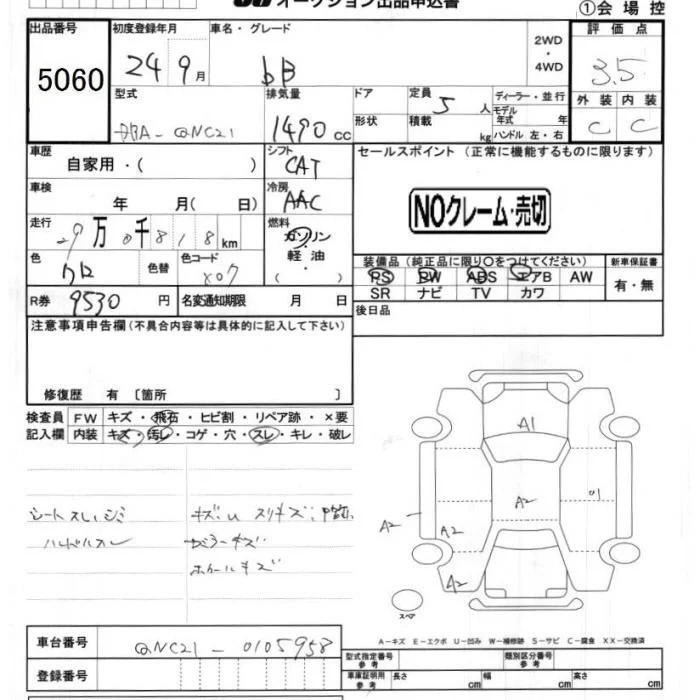 オークション出品申込書
①会場控
出品番号
5060
初度登録年月
24 9月
車名・グレード
bB
2WD
・
4WD
評価点
3.5
外装 内装
C C
型式
DBA-QNC21
排気量
1490cc
ドア
形状
定員 5人
積載 kg
ディーラー・並行
モデル年式 年
ハンドル 左・右
車歴
自家用・( )
シフト
CAT
セールスポイント (正常に機能するものに限ります)
NOクレーム・売切
車検
年 月( 日)
冷房
AAC
走行
29万0千818km
燃料
ガソリン
軽油
( )
色
クロ
色替
色コード
X07
装備品 (純正品に限り○をつけてください)
PS PW ABS エアB AW
SR ナビ TV カワ
新車保証書
有・無
R券 9530円
名変通知期限 月 日
後日品
注意事項申告欄(不具合内容等は具体的に記入して下さい)
修復歴 有 〔箇所 〕
検査員
記入欄
FW キズ・飛石・ヒビ割・リペア跡・×要
内装 キズ・汚レ・コゲ・穴・スレ・キレ・破レ
シートスレ、シミ
ハンドルスレ
キズ:U スリキズ:
ドアミラーキズ
ホイールキズ
A1
A2
A2
A2
A2
スペア
A-キズ E-エクボ U-凹み W-補修跡 S-サビ C-腐食 XX-交換済
車台番号
QNC21-0105958
登録番号
型式指定番号
参考
類別区分番号
参考
車庫証明用
参考
長さ cm
幅 cm
高さ cm